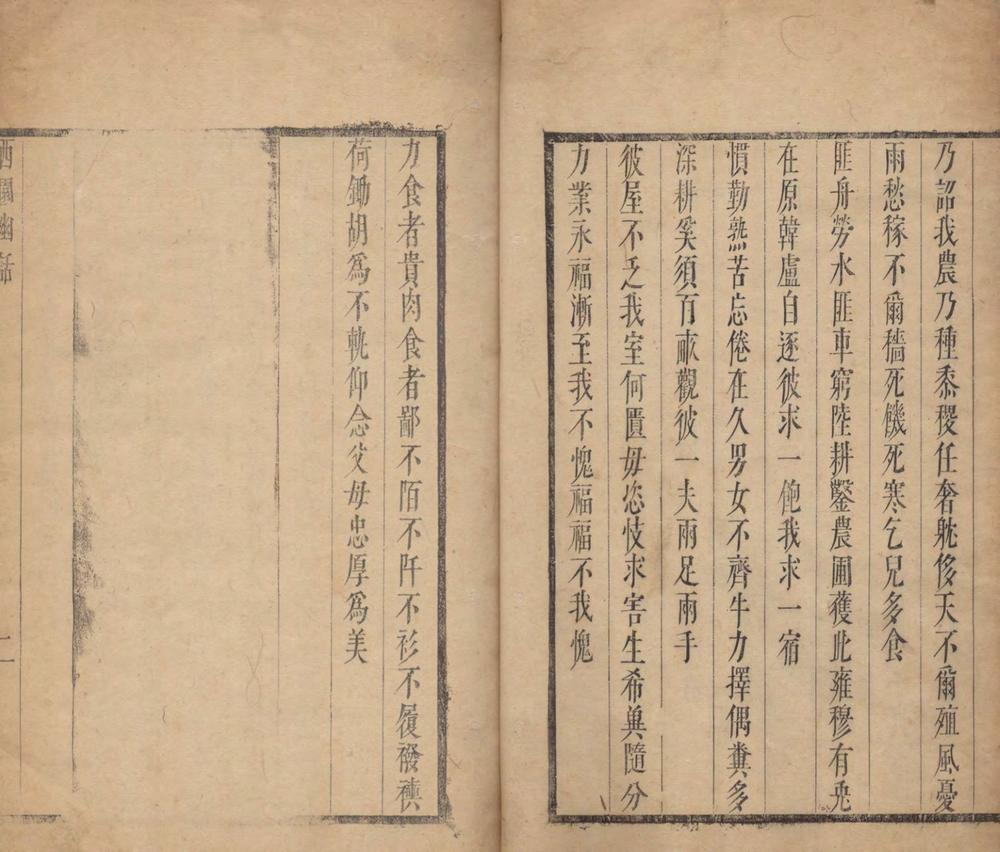 乃詔我農乃種黍稷任奢躭侈天不爾殖風憂
雨愁稼不爾穡死饑死寒乞兒多食
匪舟勞水匪車窮陸耕鑿農圃蒦此雍穆有兎
在原韓盧自逐彼求一飽我求一宿
慣勤熟苦忘倦在久男女不齊牛力擇偶糞多
深耕奚須百畝觀彼一夫兩足兩手
彼屋不乏我室何匱毋恣忮求害生希兾隨分
力業永福漸至我不愧福福不我愧
力食者貴肉食者鄙不陌不阡不衫不履襏襫
荷鋤胡爲不軌仰念父母忠厚爲美
栖園幽話
二